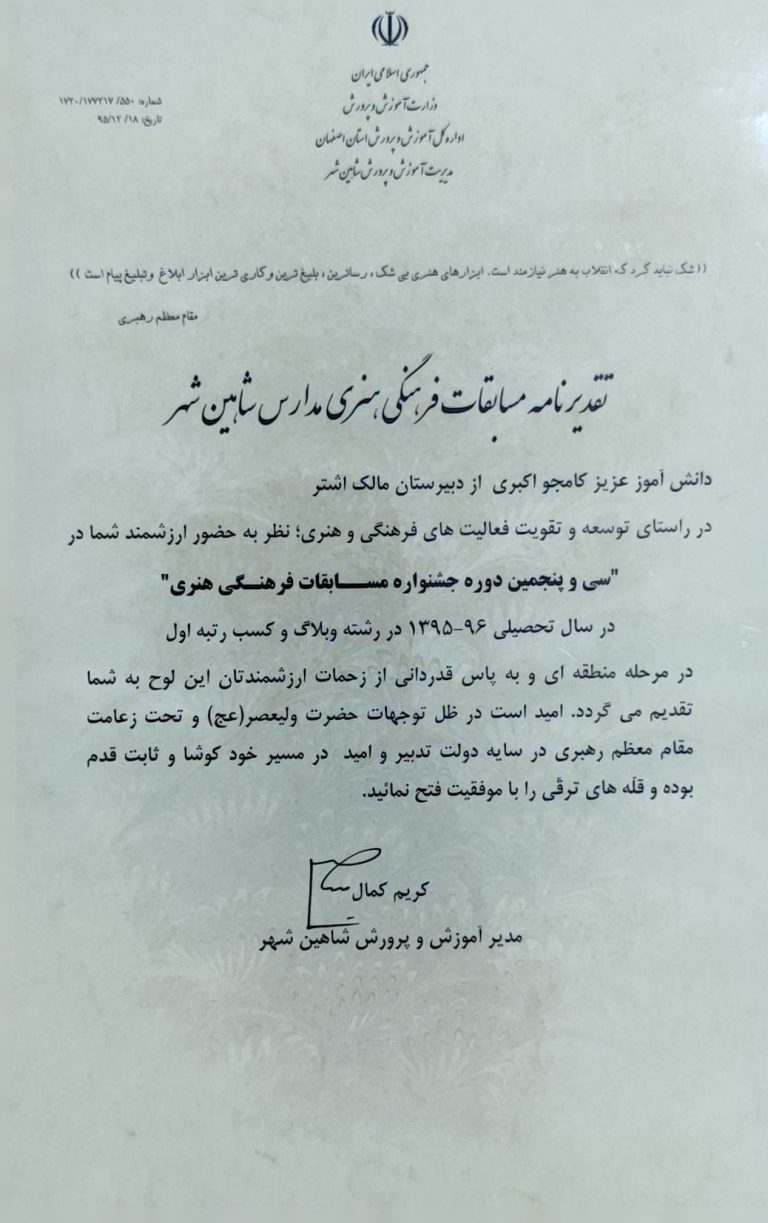 جمهوری اسلامی ایران
وزارت آموزش و پرورش
اداره کل آموزش و پرورش استان اصفهان
مدیریت آموزش و پرورش شاهین شهر
شماره: ۵۵۰/ ۱۷۲۰/۱۷۷۲۱۷
تاریخ: ۹۵/۱۲/۱۸
((شک نباید کرد که انقلاب به هنر نیازمند است. ابزارهای هنری بی شک، رساترین، بلیغ ترین و کاری ترین ابزار ابلاغ و تبلیغ پیام است ))
مقام معظم رهبری
تقدیرنامه مسابقات فرهنگی هنری مدارس شاهین شهر
دانش آموز عزیز کامجو اکبری از دبیرستان مالک اشتر
در راستای توسعه و تقویت فعالیت های فرهنگی و هنری؛ نظر به حضور ارزشمند شما در
"سی و پنجمین دوره جشنواره مســـابقات فرهنـــگی هنری"
در سال تحصیلی ۹۶-۱۳۹۵ در رشته وبلاگ و کسب رتبه اول
در مرحله منطقه ای و به پاس قدردانی از زحمات ارزشمندتان این لوح به شما
تقدیم می گردد. امید است در ظل توجهات حضرت ولیعصر(عج) و تحت زعامت
مقام معظم رهبری در سایه دولت تدبیر و امید در مسیر خود کوشا و ثابت قدم
بوده و قلّه های ترقّی را با موفقیت فتح نمائید.
کریم کمال
مدیر آموزش و پرورش شاهین شهر